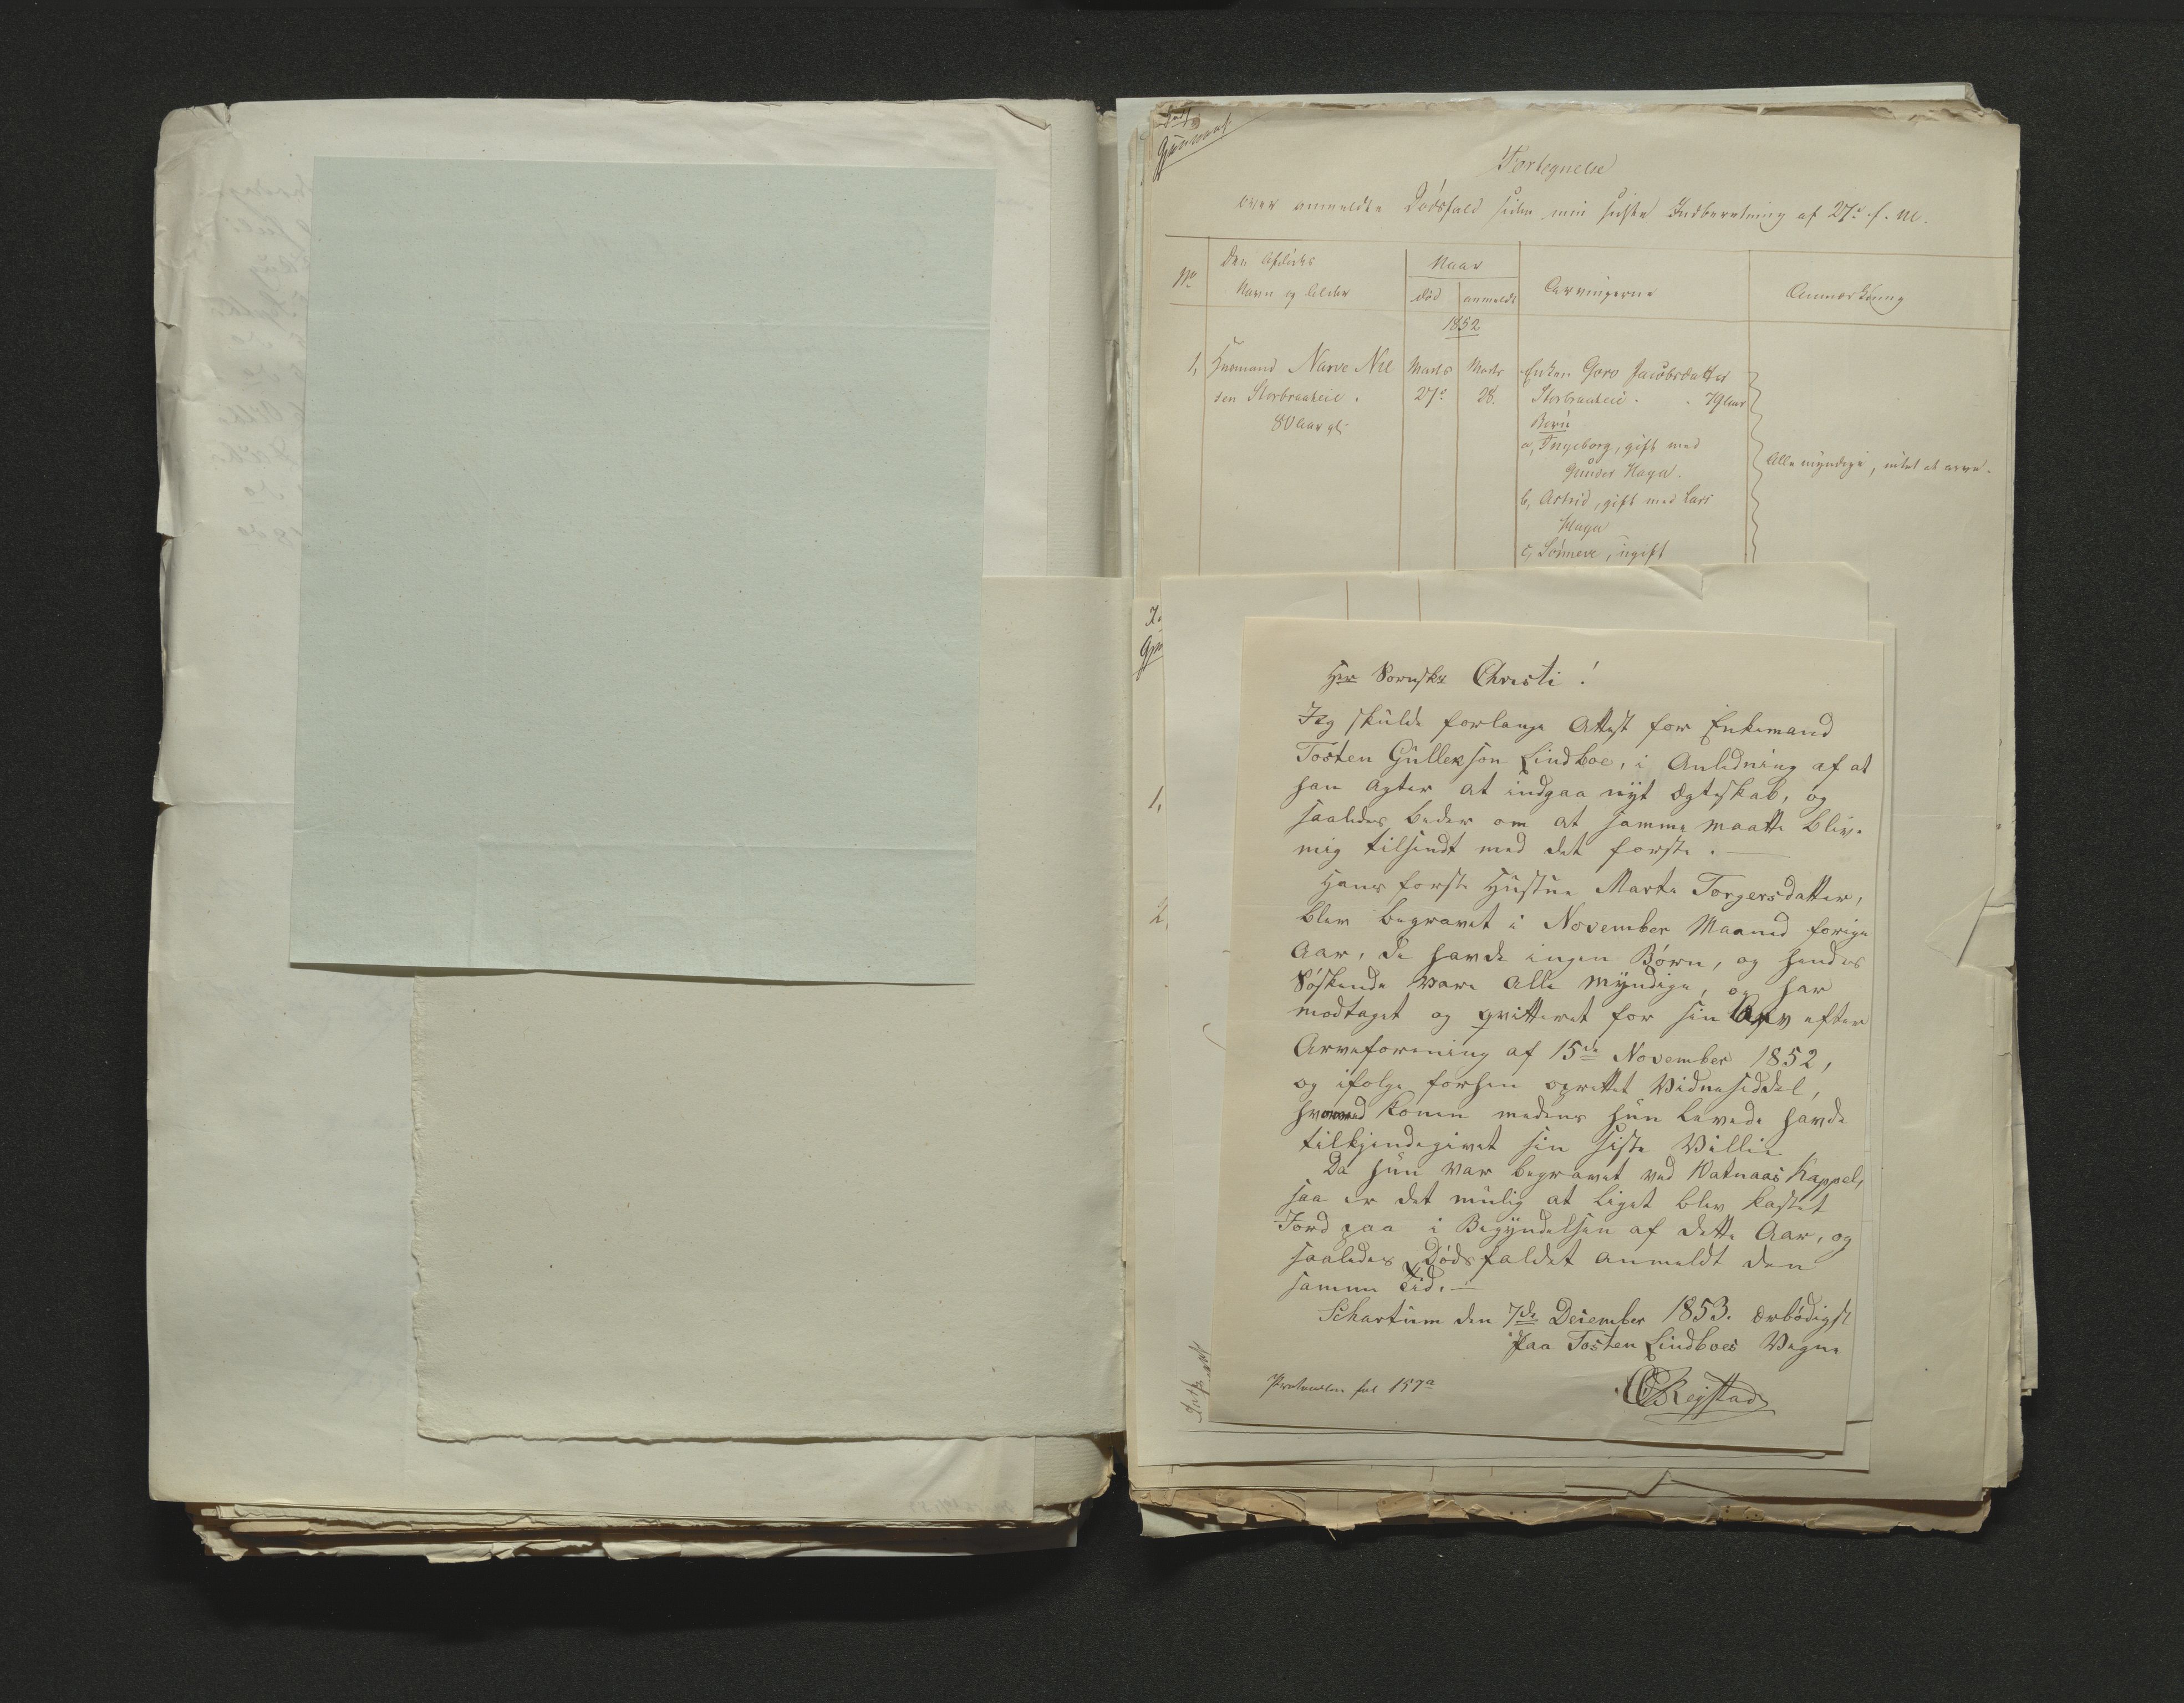 Fortegnelse
over anmeldte Dödsfald siden min sidste Indberetning af 27de f. M.
No
Den Afdödes
Navn og Alder
Naar
död
anmeldt
Arvingerne
Anmærkning
1852
1, Huusmand Narve Nil
sen Storbraateie.
80 Aar gl.
Marts
27de
Marts
28.
Enken Goro Jacobsdatter
Storbraateie. 79 Aar
Börn
a, Ingeborg, gift med
Gunder Haga.
b, Astrid, gift med Lars
Haga
c, Sönneve, ugift
Alle myndige, intet at arve.
1,
2,
Hr Sornskr Christi!
Jeg skulde forlange Attest for Enkemand
Tosten Gullekson Lindboe, i Anledning af at
han agter at indgaa nyt Ægteskab, og
saaledes beder om at samme maatte blive
mig tilsendt med det forste.
Hans forste Hustue Marte Torgersdatter,
blev begravet i November Maaned forige
Aar, de havde ingen Börn, og hendes
Söskende vare alle Myndige, og har
modtaget og qvitteret for sin Arv efter
Arveforening af 15de November 1852,
og ifolge forhen oprettet Vidneseddel,
hvorved Konen medens hun levede havde
tilkjendegivet sin siste Villie
Da hun var begravet ved Vatnaas Kappel,
saa er det mulig at Liget blev kastet
Jord paa i Begyndelsen af dette Aar, og
saaledes Dödsfaldet anmeldt den
samme Tid.
Schartum den 7de Desember 1853. Ærbödigst
Paa Tosten Lindboes Vegne
Protocollen fol 157a